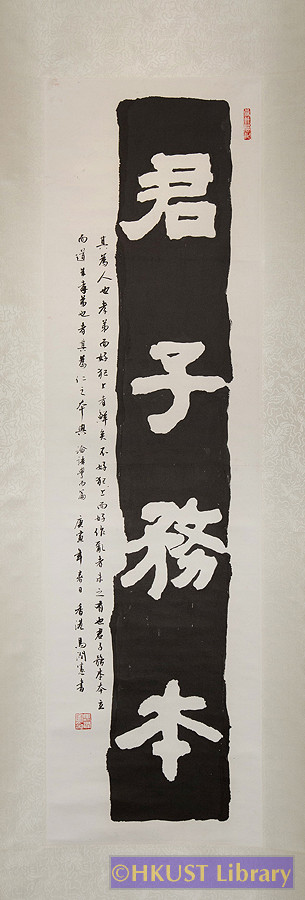 君子務本
其為人也孝弟而好犯上者鮮矣不好犯上而好作亂者未之有也君子務本本立
而道生孝弟也者其為仁之本與 論語學而篇 庚寅年春日 香港馬門憲書
©HKUST Library